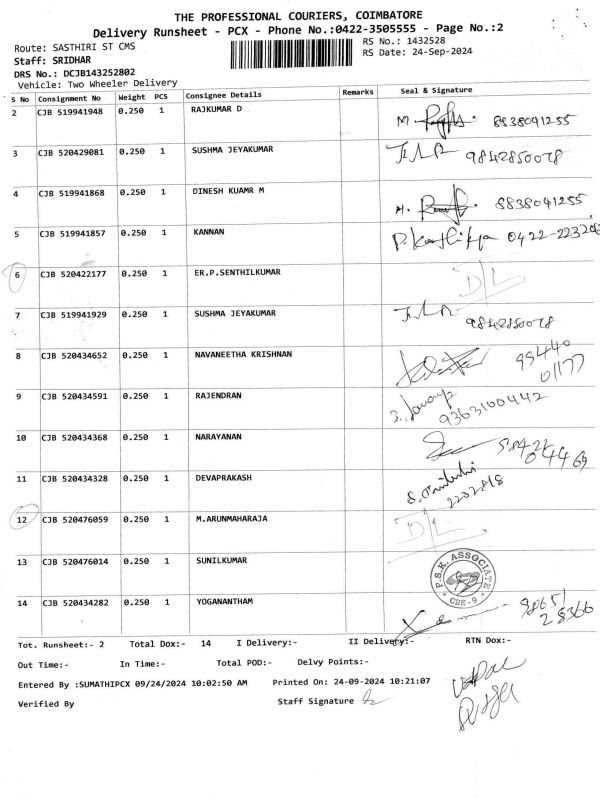 THE PROFESSIONAL COURIERS, COIMBATORE
Delivery Runsheet - PCX - Phone No.:0422-3505555 - Page No.:2
Route: SASTHIRI ST CMS
RS No.: 1432528
Staff: SRIDHAR
RS Date: 24-Sep-2024
DRS No.: DCJB143252802
Vehicle: Two Wheeler Delivery
S No Consignment No Weight PCS Consignee Details Remarks Seal & Signature
2 CJB 519941948 0.250 1 RAJKUMAR D 8838041255
3 CJB 520429081 0.250 1 SUSHMA JEYAKUMAR 9842850078
4 CJB 519941868 0.250 1 DINESH KUAMR M 8838041255
5 CJB 519941857 0.250 1 KANNAN P. Karthikga
6 CJB 520422177 0.250 1 ER.P.SENTHILKUMAR D/L
7 CJB 519941929 0.250 1 SUSHMA JEYAKUMAR 9842850078
8 CJB 520434652 0.250 1 NAVANEETHA KRISHNAN 99440 01177
9 CJB 520434591 0.250 1 RAJENDRAN 9363100442
10 CJB 520434368 0.250 1 NARAYANAN
11 CJB 520434328 0.250 1 DEVAPRAKASH
12 CJB 520476059 0.250 1 M.ARUNMAHARAJA D/L
13 CJB 520476014 0.250 1 SUNILKUMAR P.S.K. ASSOCIATE CBE-9
14 CJB 520434282 0.250 1 YOGANANTHAM 98651 28366
Tot. Runsheet:- 2 Total Dox:- 14 I Delivery:- II Delivery:- RTN Dox:-
Out Time:- In Time:- Total POD:- Delvy Points:-
Entered By :SUMATHIPCX 09/24/2024 10:02:50 AM Printed On: 24-09-2024 10:21:07
Verified By Staff Signature